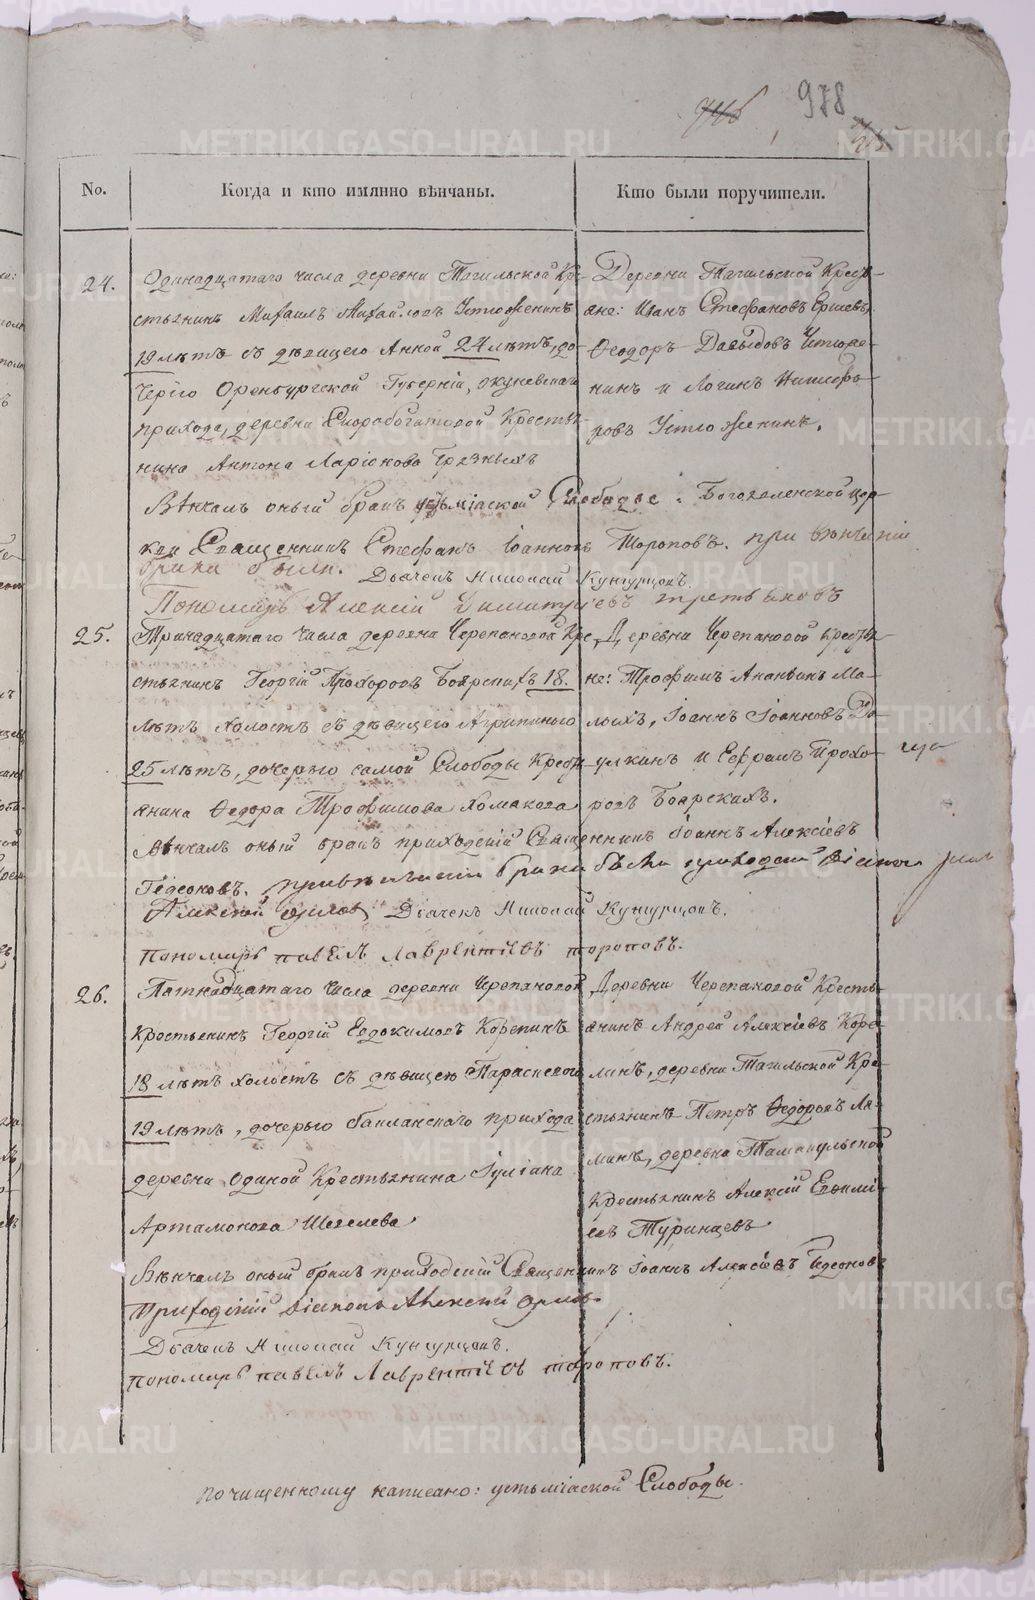 978
No.
Когда и кто имянно вѣнчаны.
Кто были поручители.
24.
Одинадцатаго числа деревни Тагильской Кре-
стьянинъ Михаилъ Михайловъ Устюженинъ
19 лѣтъ съ дѣвицею Анной 24 лѣтъ, до-
черію Оренбургской Губерніи, окуневскаго
прихода, деревни Скоробогатовой Крестья-
нина Антона Ларіонова Грязныхъ
Деревни Тагильской Кресть-
яне: Иванъ Стефановъ Ершевъ,
Ѳеодоръ Давыдовъ Устюже-
нинъ и Логинъ Никифо-
ровъ Устюженинъ.
Вѣнчалъ оный бракъ устьміаской Слободы: Богоявленской цер-
кви Священникъ Стефанъ Іоанновъ Тороповъ. при вѣнчаніи
брака были. Дьячекъ Николай Кунгурцовъ.
Пономарь Алексій Димитріевъ третьяковъ
25.
Тринадцатаго числа деревни Черепановой Кре-
стьянинъ Георгій Прохоровъ Боярскихъ 18.
лѣтъ холостъ съ дѣвицею Агрипиною
25 лѣтъ, дочерью самой Слободы Кресть-
янина Ѳедора Трофимова Хомакова
Деревни Черепановой Кресть-
яне: Трофимъ Ананьинъ Ма-
лыхъ, Іоаннъ Іоанновъ
и Ефремъ Прохо-
ровъ Боярскихъ.
Вѣнчалъ оный бракъ приходскій Священникъ Іоаннъ Алексіевъ
Гедеоновъ. при вѣнчаніи брака были приходскій Діаконъ
Алексѣй Орловъ Дьячекъ Николай Кунгурцовъ.
пономарь павелъ Лаврентіевъ тороповъ.
26.
Пятнадцатаго числа деревни Черепановой
Крестьянинъ Георгій Евдокимовъ Корелинъ
18 лѣтъ холостъ съ дѣвицею Параскевой
19 лѣтъ, дочерью баклансаго прихода
деревни Одиной Крестьянина Іуліана
Артамонова Шевелева
Деревни Черепановой Кресть-
янинъ Андрей Алексіевъ Коре-
линъ, деревни Тагильской Кре-
стьянинъ Петръ Ѳедоровъ Ла-
минъ, деревни Тамакульской
Крестьянинъ Алексій Евфимі-
евъ Туринцевъ
Вѣнчалъ оный бракъ приходскій Священникъ Іоаннъ Алексіевъ Гедеоновъ
Приходскій Діаконъ Алексѣй Орловъ.
Дьячекъ Николай Кунгурцовъ.
пономарь павелъ Лаврентіевъ тороповъ.
по чищенному написано: устьміаской Слободы.